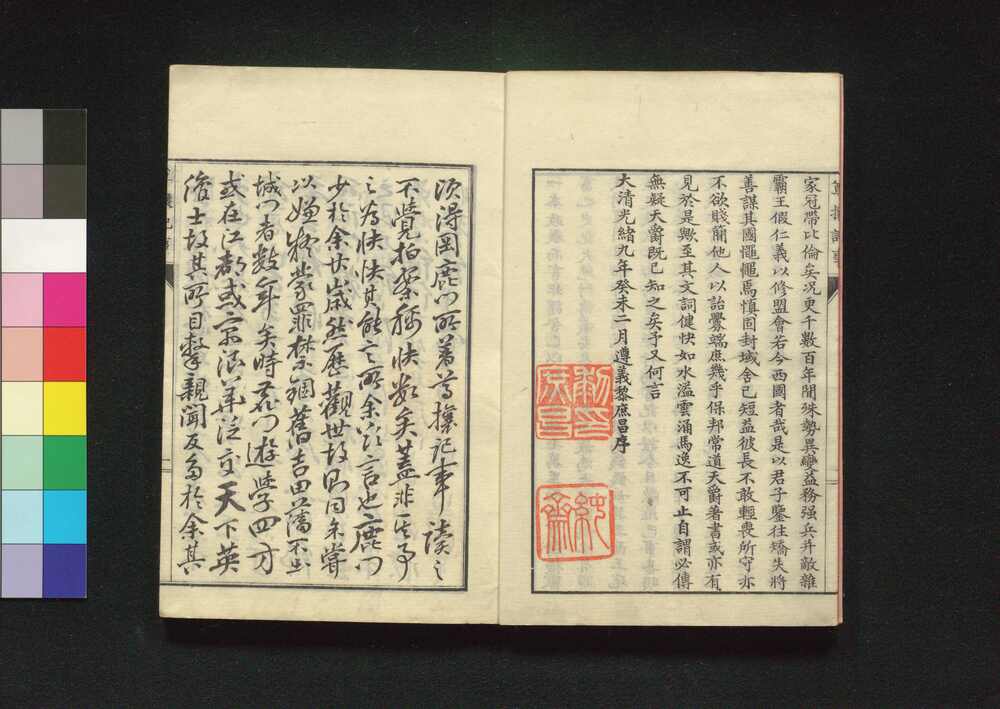 家冠帶比倫矣况更千數百年間殊勢異變益務强兵幷敵雜
霸王假仁義以修盟會若今西國者哉是以君子鑒往矯失將
善謀其國懾懾焉慎固封域舍己短益彼長不敢輕喪所守亦
不欲賤簡他人以詒釁端庶幾乎保邦常道天爵著書或亦有
見於是歟至其文詞健快如水溢雲涌馬逸不可止自謂必傳
無疑天爵既已知之矣予又何言
大清光緒九年癸未二月遵義黎庶昌序
純齋
須得岡鹿門所著尊攘記事讀之
不覺拍案稱快數矣蓋非其事
之為快快其能言所余欲言也鹿門
少於余廿歲然歷觀世故則同未嘗
以嫌疑蒙罪禁錮舊吉田藩不出
城門者數年矣時鹿門遊學四方
或在江都或京浪華泛交天下英
俊士故其所目擊親聞反多於余其